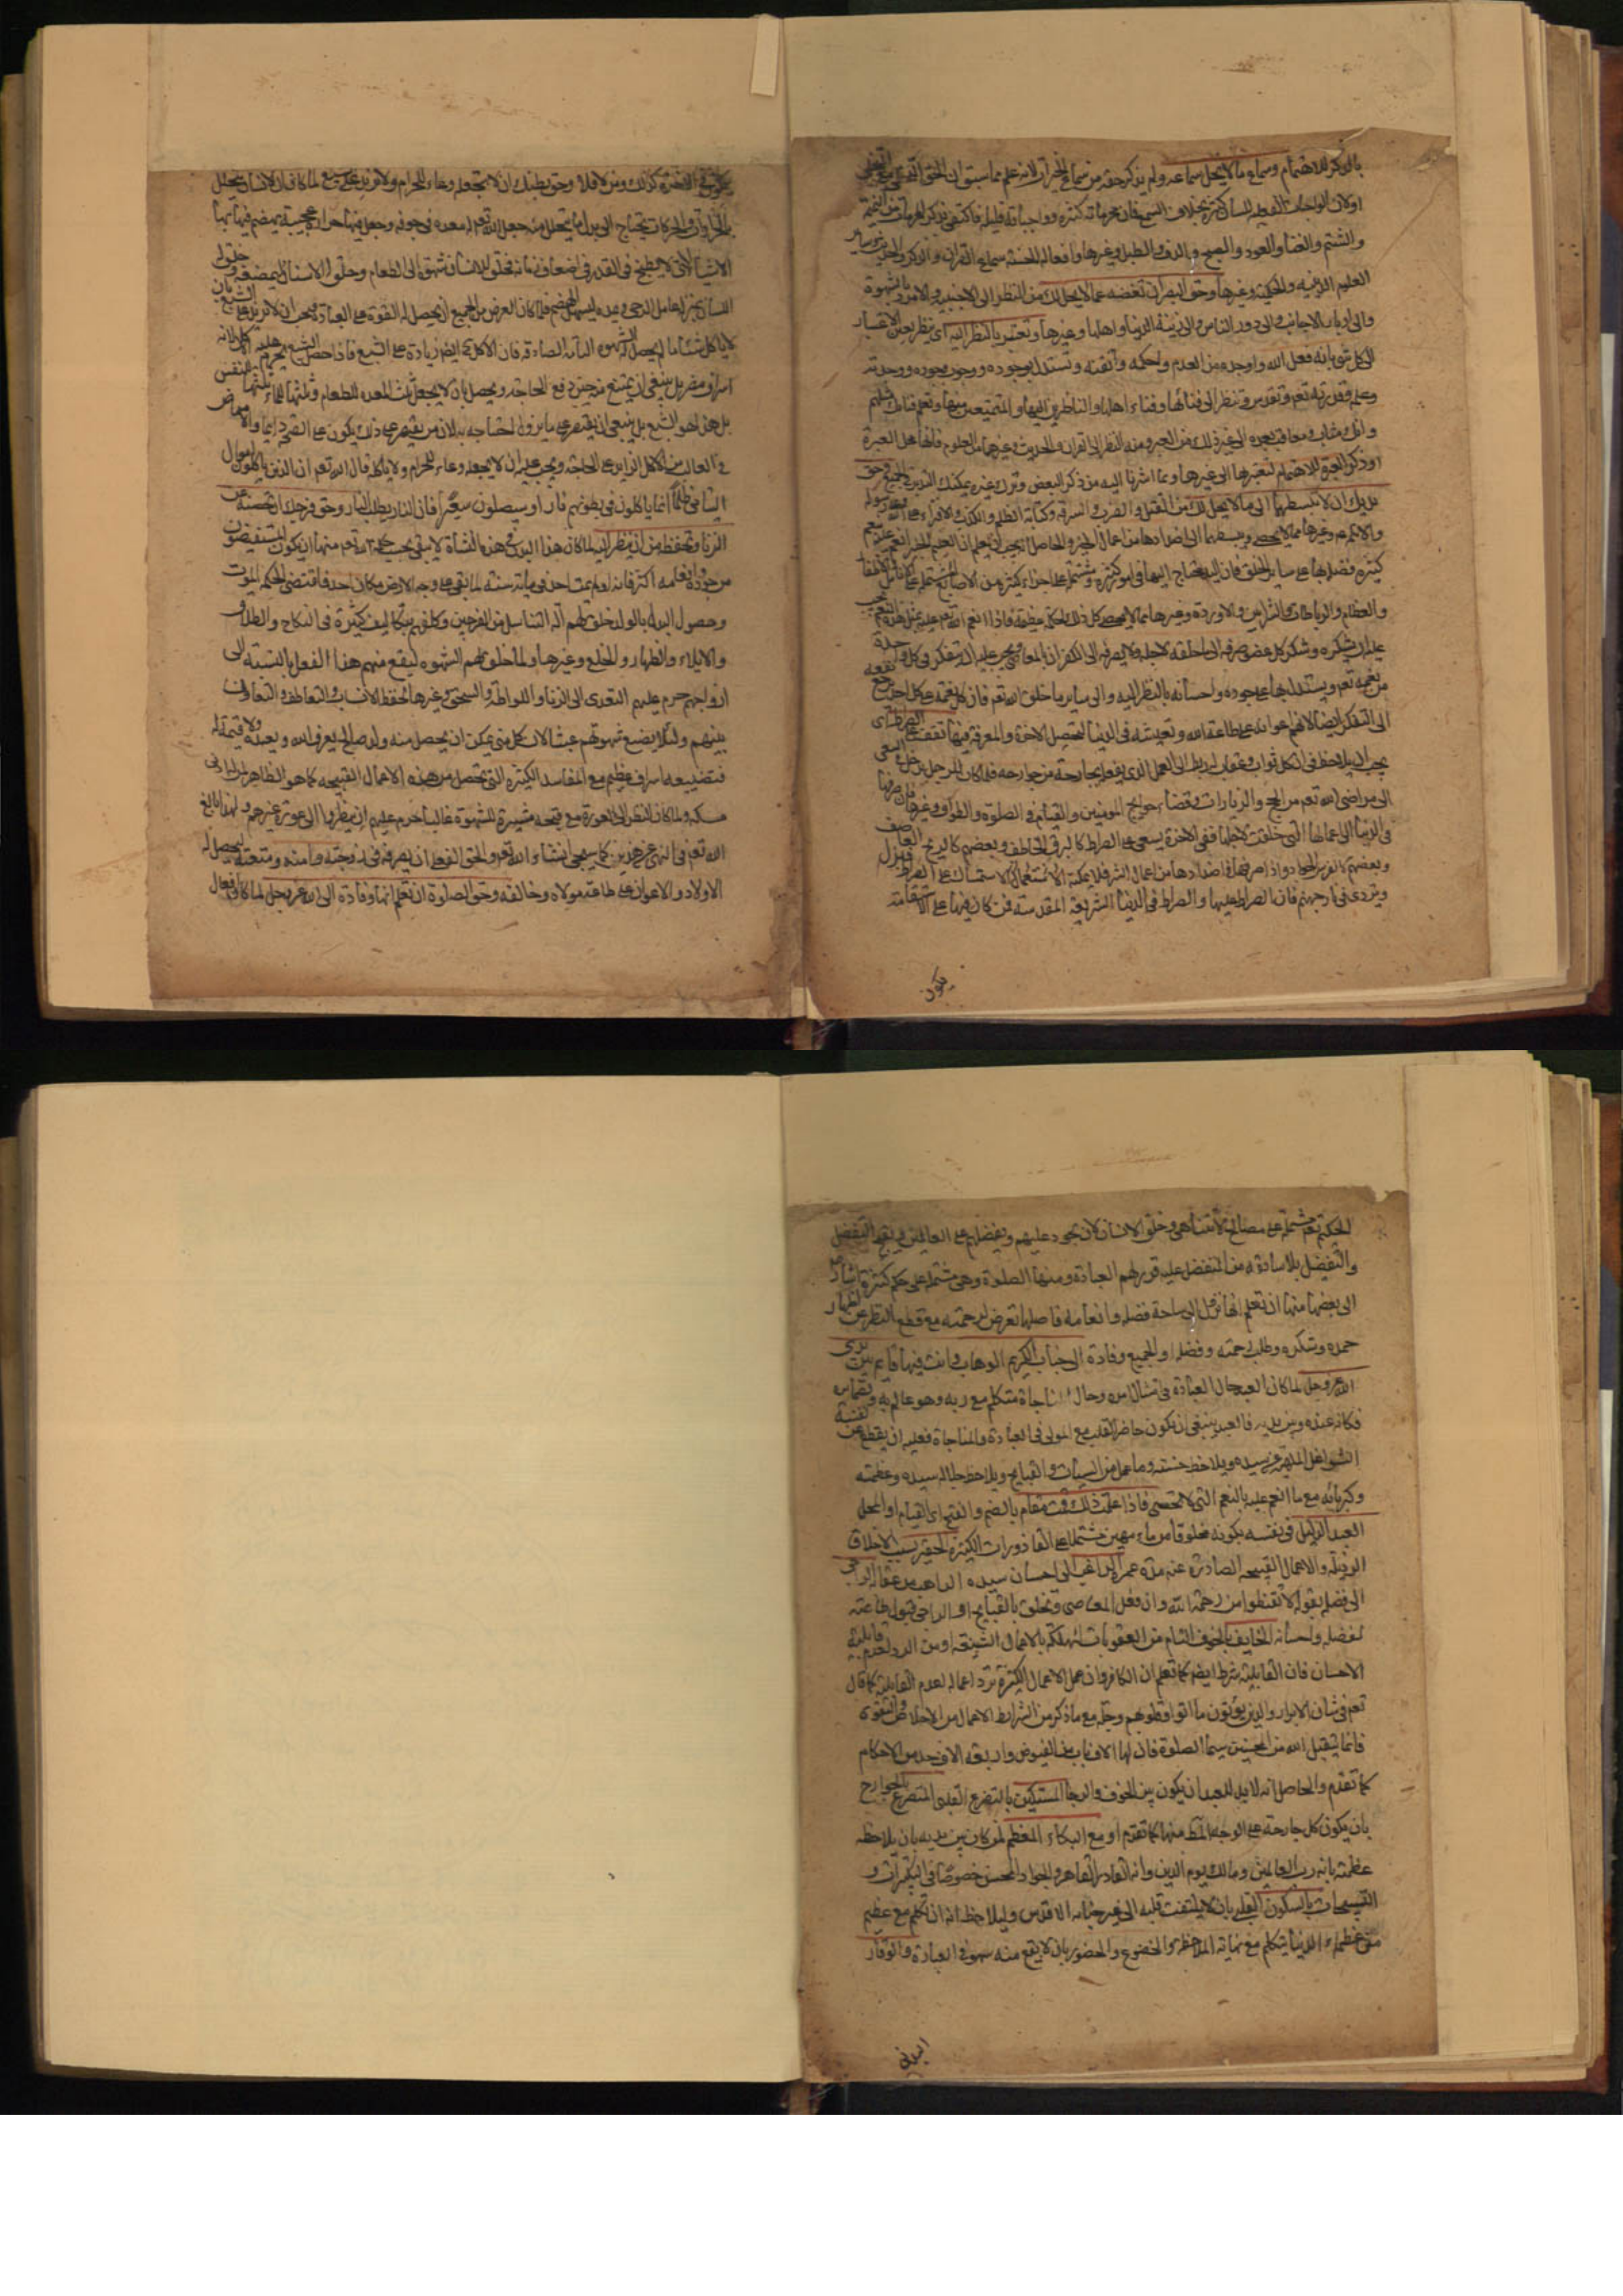 بالذكر للاهتمام وسماع ما لا يحل سماعه ولم يذكر حقه من سماع الخيرات لانه علم مما سبق ان الحق
اولان الواجبات الفعلية للسان كثيرة بخلاف السمع فان محرماته كثيرة وواجباته قليلة فاكتفى بذكر المحرمات من الغيبة
والشتم والغناء والعود والصنج والدف والطبل وغيرها وافعاله الحسنة سماع القران والذكر والحديث وسائر
العلوم الدينية والحكمية وغيرها وحق البصر ان تغضه عما لا يحل لك من النظر الى الاجنبية والامرد بالشهوة
والى ادبار الاجانب والى دور الناس والى زينة الدنيا واهلها وغيرها وتعتبر بالنظر به اى تنظر بعين الاعتبار
الى كل شئ بانه فعل الله واوجده من العدم واحكمه واتقنه وتستدل بوجوده ووجوب وجوده ووحدته
وعلمه وقدرته تعم وتقدس وتنظر الى فنائها وفناء اهلها والناظرين اليها والمتمتعين منها وتعلم انك مثلهم
وانك مثاب ومعاقب بعده الى غير ذلك من العبر ومنه النظر الى القران والحديث وغيرهما من العلوم فانها محل العبرة
او ذكر العبرة للاهتمام لتعبرها الى غيرها وبما اشرنا اليه من ذكر البعض وترك غيره يمكنك التدبر في الجميع وحق
يدك ان لا تبسطها الى ما لا يحل لك من القتل والضرب والسرقة وكتابة الظلم والكذب والافتراء على الله ورسوله
والائمة عم وغيرها مما لا يحصى وتبسطهما الى اضدادها من اعمال الخير والحاصل انه يجب ان تعلم ان
كثيرة فضله بها على سائر الخلق فان اليد يحتاج اليها في امور كثيرة ومشتملة على اجزاء كثيرة من الاصابع
والعظام والرباطات والشرايين والاوردة وغيرها مما لا يحصى كل ذلك لحكمة عظيمة فاذا انعم الله تعم عليه بمثل هذه النعم يجب
عليه ان يشكره وشكر كل عضو صرفه الى ما خلقه لاجله ولا يصرفه الى الكفران بالمعاصي ويجب عليه ان يتفكر في كل واحدة
من نعمه تعم ويستدل بها على جوده واحسانه بالنظر اليه والى سائر ما خلق الله تعم فان كل نعمة على كل احد
الى التفكر ايضا لانهم اعوانه على طاعة الله وتعيشه في الدنيا لتحصيل الاخرة والمعرفة فبهما تقف على الصراط اى
يجب ان يلاحظ في كل ثواب وعقاب ارتباطه الى العمل الذي يفعله بجارحة من جوارحه فلما كان للرجلين دخل في السعى
الى مراضى الله تعم من الحج والزيارات وقضاء حوائج المومنين والقيام في الصلوة والطواف وغيرها فان صرفها
في الدنيا الى اعمالها التي خلقت لاجلها ففي الاخرة يسعى على الصراط كالبرق الخاطف وبعضهم كالريح العاصف
وبعضهم كالفرس الجواد واذا صرفها في اضدادها من اعمال الشر فلا يمكنه الاستعمال والاستمساك على الصراط فيزل
ويتردى في نار جهنم فان الصراط عليها والصراط في الدنيا الشريعة المقدسة فمن كان فيها على الاستقامة
يكون
يكون في الاخرة كذلك ومن لا فلا وحق بطنك ان لا تجعله وعاء للحرام ولا تزيد على الشبع لما كان الانسان يتحلل
بالحرارات والحركات يحتاج الى بدل ما يتحلل منه جعل الله تعم له معدة في جوفه وجعل فيها حرارة عجيبة يهضم فيها بها
الاشياء التي لا تطبخ في القدر في اضعاف زمانه فخلق للانسان شهوة الى الطعام وخلق له الاسنان ليمضغه وخلق له
اللسان بمنزلة عامل الرحى وغيره ليسهل الهضم فلما كان الغرض من الجميع ان يحصل له القوة على العبادة يجب ان لا تزيد على الشبع بان
لا ياكل شيئا ما لم يحصل له الشهوة التامة الصادقة فان الاكل ح ايضا زيادة على الشبع فاذا حصل الشبع يحرم عليه الاكل لانه
اسراف ومضر بل ينبغي ان يمتنع من حين دفع الحاجة ويحصل بان لا يجعل ثلث المعدة للطعام وثلثها للماء وثلثها للنفس
بل هذا هو الشبع بل ينبغي ان يقتصر على ما يزول احتياجه به لان من يقتصر على ذلك يكون على الصحة دايما والامراض
في الغالب من الاكل الزايد على الحاجة ويجب عليه ان لا يجعله وعاء للحرام ولا ياكله قال الله تعم ان الذين ياكلون اموال
اليتامى ظلما انما ياكلون في بطونهم نارا وسيصلون سعيرا فان النار يطلب النار وحق فرجك ان تحصنه عن
الزنا وتحفظه من ان ينظر اليه لما كان هذا البدن في هذه النشاة لا يبقى يجب حكمة الله تعم منها ان يكون المستفيضون
من جوده وانعامه اكثر فانه لو لم يمت احد في مائة سنة لما بقى على وجه الارض مكان احد فاقتضى الحكمة الموت
وحصول البدل بالولد فخلق لهم آلة التناسل من الفرجين وكلفهم بتكاليف كثيرة في النكاح والطلاق
والايلاء والظهار والخلع وغيرها ولما خلق لهم الشهوة ليقع منهم هذا الفعل بالنسبة الى
ازواجهم حرم عليهم التعدى الى الزنا واللواطة والسحق وغيرها لحفظ الانساب والتعاطف والتعاون
بينهم ولئلا يضيع شهوتهم عبثا لان كل منى يمكن ان يحصل منه ولد صالح يعرف الله ويعبده ولا قيمة له
فتضييعه اسراف عظيم مع المفاسد الكثيرة التي تحصل من هذه الاعمال القبيحة كما هو الظاهر لمن له ادنى
مسكة ولما كان النظر الى العورة مع قبحه مثيرة للشهوة غالبا حرم عليهم ان ينظروا الى عورة غيرهم ولهذا بالغ
الله تعم في النهى عن هذين كما سيجئ انشاء الله تعم والحق الفعلى ان يصرفه في زوجته وامته ومتعته ليحصل له
الاولاد والاعوان على طاعة مولاه وخالقه وحق الصلوة ان تعلم انها وفادة الى الله عز وجل لما كان افعال
الحكيم تعم مشتملة على مصالح لا تتناهى وخلق الانسان لان يجود عليهم ويفضلهم على العالمين ويقبح التفضل
والتفضيل بلا مادة له من المتفضل عليه قرر لهم العبادة ومنها الصلوة وهى مشتملة على حكم كثيرة اشار
الى بعضها منها ان تعلم انها نزول الى ساحة فضله وانعامه فاصلها تعرض لرحمته مع قطع النظر عن اظهار
حمده وشكره وطلب رحمته وفضله او الجميع وفادة الى جناب الكريم الوهاب وانت فيها قايم بين يدى
الله عز وجل لما كان العبد حال العبادة في امتثال امره وحال المناجاة متكلم مع ربه وهو عالم به
فكانه عنده وبين يديه فالعبد ينبغي ان يكون حاضر القلب مع المولى في العبادة والمناجاة فعليه ان يقطع عن نفسه
الشواغل الملهية عن سيده ويلاحظ خسته وما عمل من السيئات والقبايح ويلاحظ جلالة سيده وعظمته
وكبريائه مع ما انعم عليه بالنعم التي لا تحصى فاذا علمت ذلك قمت مقام بالضم والفتح اى القيام او المحل
العبد الذليل في نفسه بكونه مخلوقا من ماء مهين مشتملا على القاذورات الكثيرة الحقير بسبب الاخلاق
الرذيلة والاعمال القبيحة الصادرة عنه مدة عمره الراغب الى احسان سيده الراهب من عقابه الراجى
الى فضله بقوله لا تقنطوا من رحمة الله وان فعل المعاصى وتخلق بالقبايح او الراجى قبول طاعته
لفضله واحسانه الخايف بالخوف التام من العقوبات المهلكة بالاعمال الشنيعة او من الرد لعدم قابلية
الاحسان فان القابلية شرط ايضا كما تعلم ان الكافر وان عمل الاعمال الكثيرة ترد اعماله لعدم القابلية كما قال
تعم في شان الابرار والذين يؤتون ما اتوا وقلوبهم وجلة مع ما ذكر من الشرايط الاعمال من الاخلاص والتقوى
فانما يتقبل الله من المحسنين سيما الصلوة فان لها الاف باب من الفيوض واربعة الاف حد من الاحكام
كما تقدم والحاصل انه لا بد للعبد ان يكون بين الخوف والرجا المستكين بالتضرع القلبى المتضرع بالجوارح
بان يكون كل جارحة على الوجه المط منها كما تقدم او مع البكاء المعظم لمن كان بين يديه بان يلاحظ
عظمته بانه رب العالمين ومالك يوم الدين وانه القادر القاهر والجواد المحسن خصوصا في التكبيرات و
التسبيحات بالسكون القلبى بان لا يلتفت قلبه الى غير جنابه الاقدس وليلاحظ انه ان تكلم مع عظيم
من عظماء الدنيا يتكلم مع نهاية الملاحظة والخضوع والحضور بان لا يقع منه سهو في العبادة والوقار